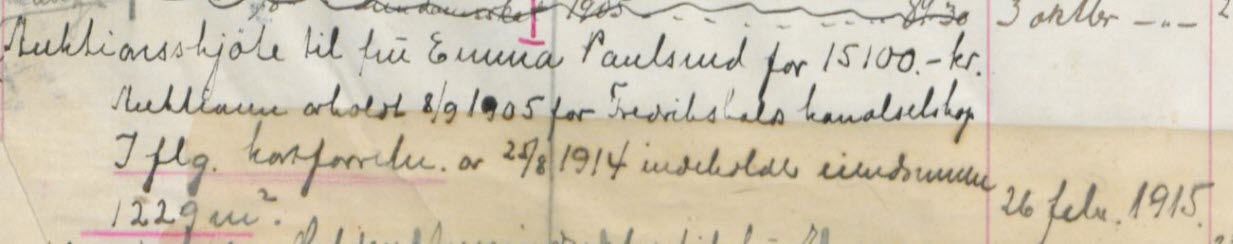 1905 3 oktbr -"-
Auktionsskjøte til fru Emma Paulsrud for 15100.- kr.
Auktionen avholdt 8/9 1905 for Fredrikshalds kanalselskap
I flg. kartforretn. av 25/8 1914 indeholder eiendommen
1229 m². 26 febr. 1915.